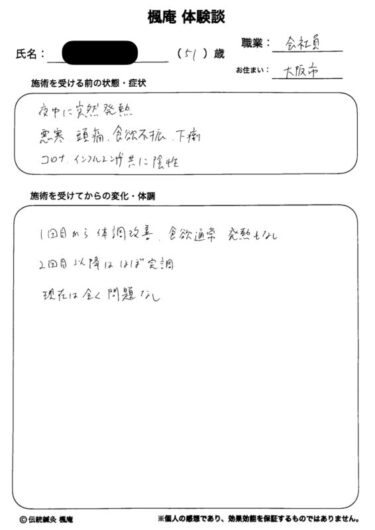 楓庵 体験談
職業： 会社員
氏名： （51）歳
お住まい： 大阪市
施術を受ける前の状態・症状
夜中に突然発熱
悪寒 頭痛、食欲不振、下痢
コロナ インフルエンザ共に陰性
施術を受けてからの変化・体調
1回目から体調改善、食欲通常 発熱もなし
2回目以降はほぼ完調
現在は全く問題なし
©伝統鍼灸 楓庵
※個人の感想であり、効果効能を保証するものではありません。